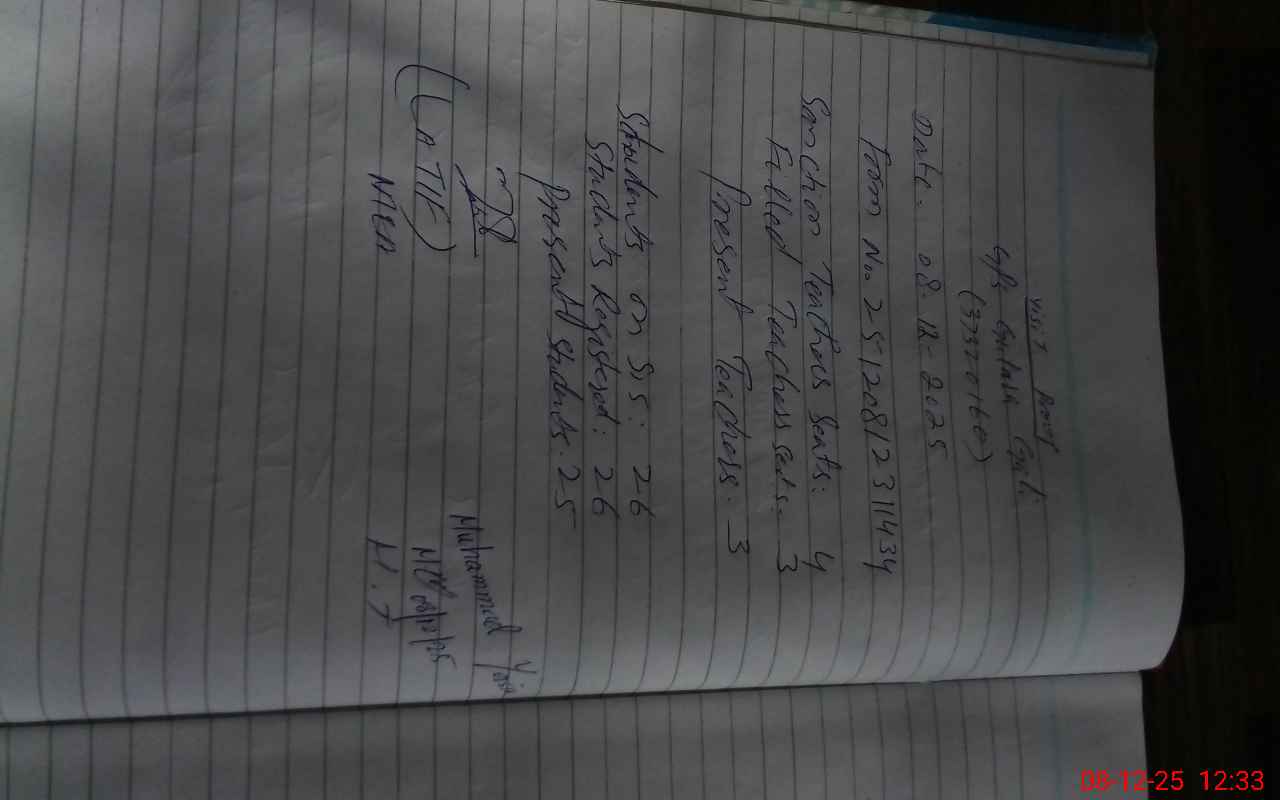 Visit Proof
(37320160)
Date. 08-12-2025
Form No. 25120812311434
Sanction Teachers Seats: 4
Filled Teachers Seats. 3
Present Teachers. 3
Students on SIS: 26
Students Registered: 26
Present Students. 25
(LATIF)
MEA
Muhammad Yasin
08/12/25
H.T
08-12-25 12:33